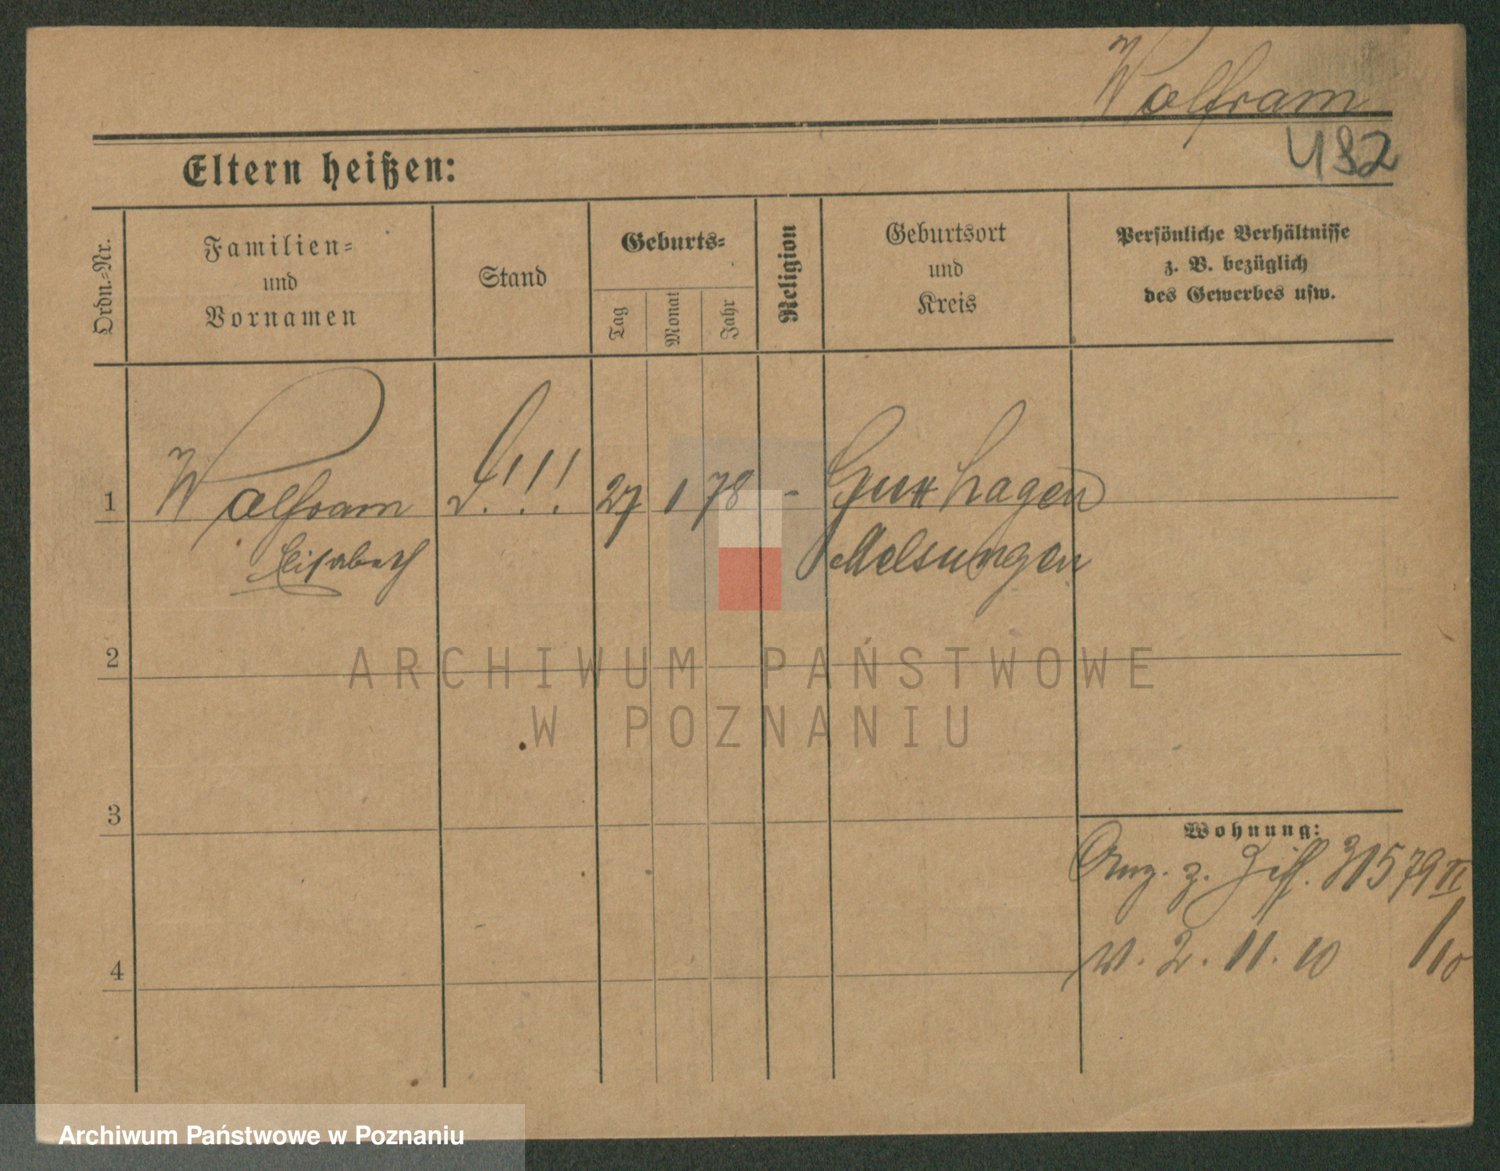 Wolfram
482
Eltern heißen:
Ordn.-Nr.
Familien-
und
Vornamen
Stand
Geburts-
Tag
Monat
Jahr
Religion
Geburtsort
und
Kreis
Persönliche Verhältnisse
z. B. bezüglich
des Gewerbes usw.
1
Wolfram
!!!
27
1
78
-
Guxhagen
Elisabeth
Melsungen
2
ARCHIWUM PAŃSTWOWE
W POZNANIU
3
Wohnung:
Anz. z. Ziff. 31579 II
/10
v. 2. 11. 10
4
Archiwum Państwowe w Poznaniu